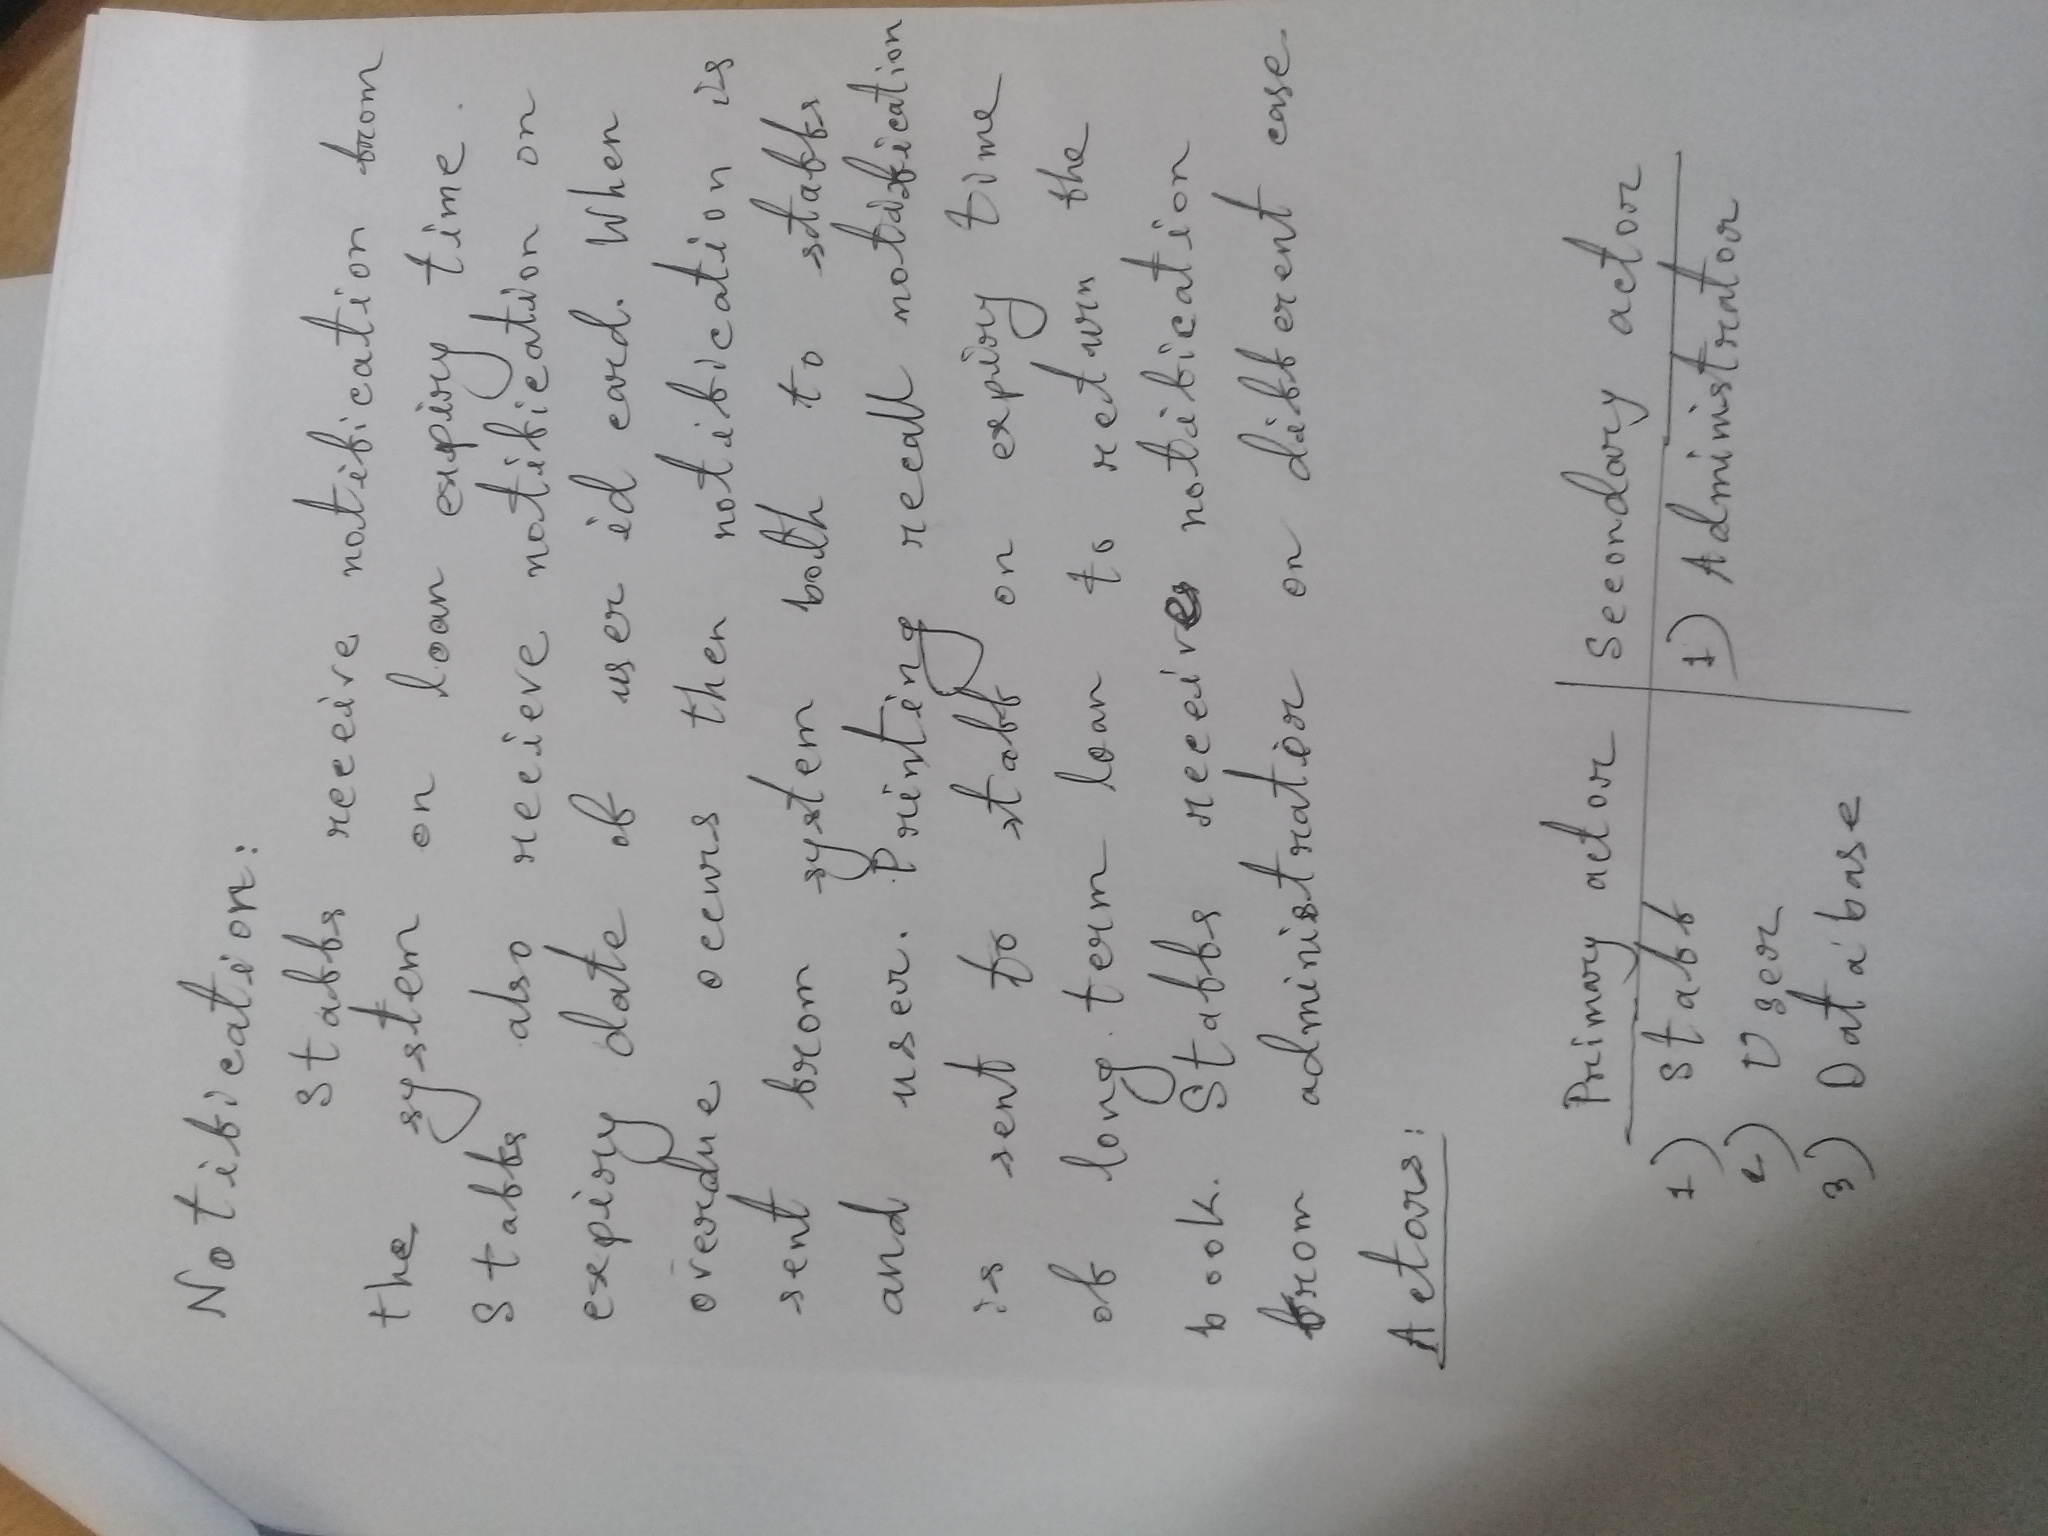 Notification:
Staffs receive notification from
the system on loan expiry time.
Staffs also recieve notification on
expiry date of user id card. When
overdue occurs then notification is
sent from system both to staffs
and user. Printing recall notification
is sent to staff on expiry time
of long term loan to return the
book. Staffs receives notification
from administrator on different case
Actors:
Primary actor | Secondary actor
1) Staff 1) Administrator
2) User
3) Database